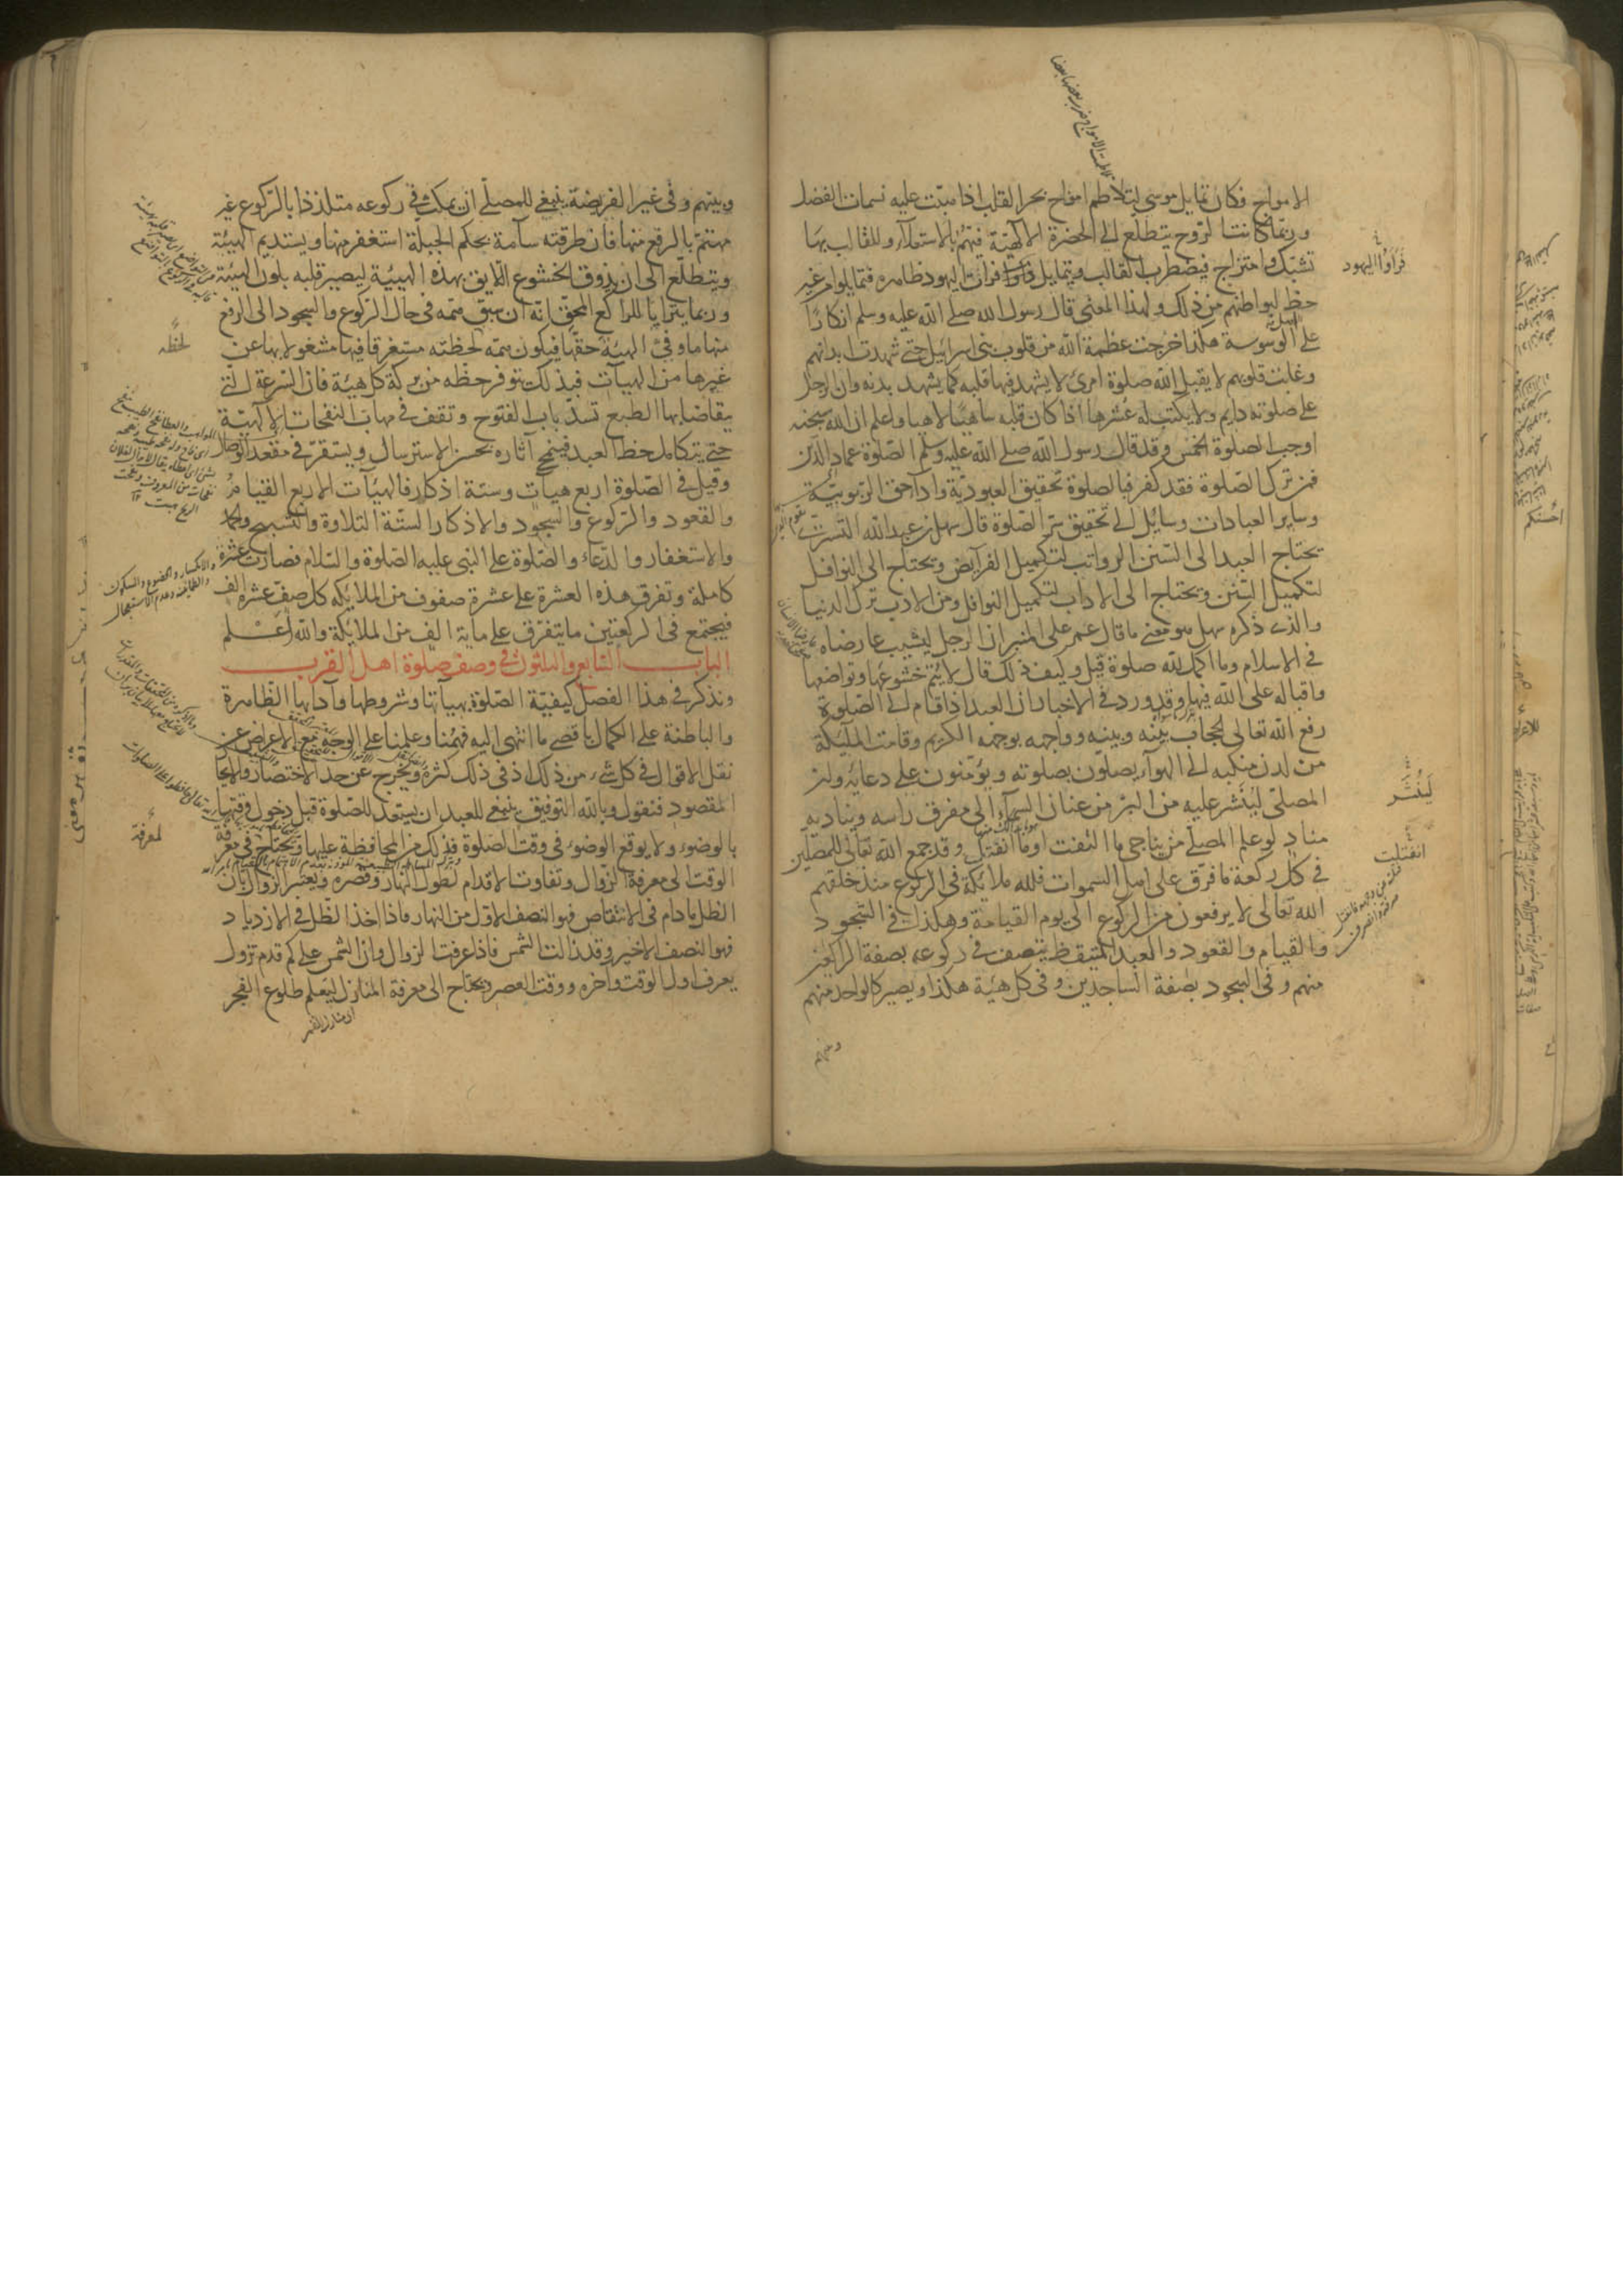 الامواج فكان تمايل موسى لتلاطم امواج بحر القلب اذا هبّت عليه نسمات الفضل
وربّما كانت الرّوح يتطلّع الى الحضرة الالهيّة فتهمّ بالاستعلاء وللقالب بها
تشبّك وامتزاج فيضطرب القالب ويتمايل فرات اليهود ظاهره فتمايلوا من غير
حظ لبواطنهم من ذلك ولهذا المعنى قال رسول الله صلى الله عليه وسلم انكارًا
على اهل الوسوسة هكذا خرجت عظمة الله من قلوب بنى اسرائيل حتى شهدت ابدانهم
وغابت قلوبهم لا يقبل الله صلوة امرئ لا يشهد فيها قلبه كما يشهد بدنه وان الرجل
على صلوته دايم ولا يكتب له عشرها اذا كان قلبه ساهيًا لاهيا واعلم ان الله سبحنه
اوجب الصلوة الخمس وقد قال رسول الله صلى الله عليه وسلم الصلوة عماد الدّين
فمن ترك الصلوة فقد كفر فبالصلوة تحقيق العبوديّة واداء حق الربوبيّة
وساير العبادات وسايل الى تحقيق سرّ الصّلوة قال سهل بن عبد الله التسترى
يحتاج العبد الى السّنن الرواتب لتكميل الفرايض ويحتاج الى النوافل
لتكميل السّنن ويحتاج الى الاداب لتكميل النوافل ومن الادب ترك الدنيا
والذى ذكره سهل هو معنى ما قال عمر على المنبر ان الرجل ليشيب عارضاه
فى الاسلام وما اكمل لله صلوة قيل وكيف ذلك قال لا يتمّ خشوعها وتواضعها
واقباله على الله فيها وقد ورد فى الاخبار ان العبد اذا قام الى الصّلوة
رفع الله تعالى الحجاب بينه وبينه وواجهه بوجهه الكريم وقامت الملئكة
من لدن منكبيه الى الهوآء يصلّون بصلوته ويؤمّنون على دعائه وان
المصلّى لينثر عليه من البرّ من عنان السمآء الى مفرق راسه ويناديه
منادٍ لو علم المصلّى من يناجى ما التفت او ما انفتل وقد جمع الله تعالى للمصلّين
فى كلّ ركعة ما فرّق على اهل السموات فلله ملائكة فى الركوع منذ خلقهم
الله تعالى لا يرفعون من الركوع الى يوم القيامة وهكذا فى السّجود
والقيام والقعود والعبد المتيقّظ يتصف فى ركوعه بصفة الراكعين
منهم وفى السجود بصفة الساجدين وفى كل هيئة هكذا ويصير كالواحد منهم
فَرَاَوْا اليهود
لَيُنْثَر
انفتلت
وبينهم وفى غير الفريضة ينبغى للمصلّى ان يمكث فى ركوعه متلذذا بالرّكوع غير
مهتمّ بالرفع منها فان طرقته سآمة بحكم الجبلّة استغفر منها ويستديم الهيئة
ويتطلّع الى ان يذوق الخشوع اللايق بهذه الهيئة ليصير قلبه بلون الهيئة
وربما يترايا للراكع المحقّ انه ان سبق همّه فى حال الرّكوع والسجود الى الرفع
منها ما وفّى الهيئة حقّها فيكون همّه لحظته مستغرقا فيها مشغولا بها عن
غيرها من الهيآت فبذلك يتوفر حظّه من بركة كل هيئة فان السّرعة التى
يتقاضا بها الطبع تسدّ باب الفتوح وتقف فى مهابّ النفحات الالهيّة
حتى يتكامل حظ العبد فينمحى آثاره بحسن الاسترسال ويستقرّ فى مقعد الوصال
وقيل فى الصّلوة اربع هيات وستة اذكار فالهيآت الاربع القيام
والقعود والرّكوع والسجود والاذكار الستّة التلاوة والتسبيح والحمد
والاستغفار والدّعاء والصّلوة على النبى عليه الصّلوة والسّلام فصارت عشرة
كاملة وتفرق هذه العشرة على عشرة صفوف من الملائكه كل صفّ عشرة الف
فيجتمع فى الركعتين ما يتفرّق على ماية الف من الملائكة والله اعلم
البــاب السّابع والثلثون فى وصف صلوة اهل القرب
ونذكر فى هذا الفصل كيفيّة الصّلوة بهيآتها وشروطها وآدابها الظّاهرة
والباطنة على الكمال باقصى ما انتهى اليه فهمنا وعلمنا على الوجه مع الاعراض عن
نقل الاقوال فى كل شىء من ذلك اذ فى ذلك كثرة ويخرج عن حد الاختصار والايجاز
المقصود فنقول وبالله التوفيق ينبغى للعبد ان يستعد للصّلوة قبل دخول وقتها
بالوضوء ولا يوقع الوضوء فى وقت الصّلوة فذلك من المحافظة عليها ويحتاج فى معرفة
الوقت الى معرفة الزّوال وتفاوت الاقدام لطول النهار وقصره ويعتبر الزوال بان
الظل ما دام فى الانتقاص فهو النصف الاول من النهار فاذا اخذ الظل فى الازدياد
فهو النصف الاخير وقد زالت الشمس فاذا عرفت الزوال وان الشمس على كم قدم تزول
يعرف اول الوقت وآخره ووقت العصر ويحتاج الى معرفة المنازل ليعلم طلوع الفجر
لحظَه
لمعرفة